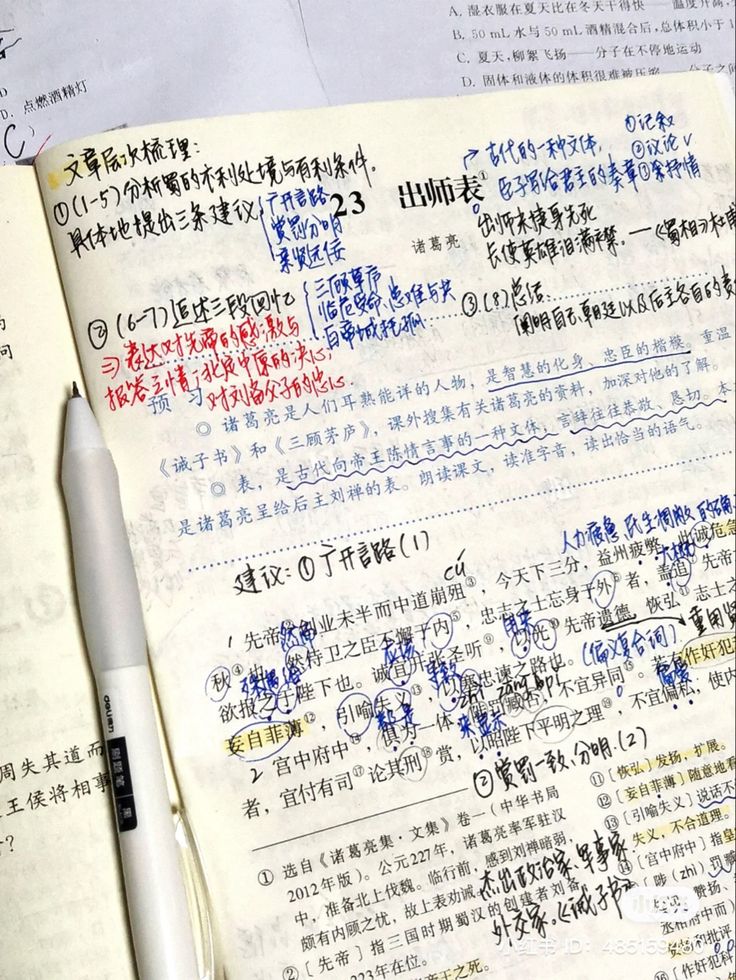 A. 湿衣服在夏天比在冬天干得快——温度升高
B. 50 mL 水与 50 mL 酒精混合后，总体积小于 1
C. 夏天，柳絮飞扬——分子在不停地运动
D. 固体和液体的体积很难被压缩——分子之间
D. 点燃酒精灯
C
文章层次梳理：
①(1-5)分析蜀的不利处境与有利条件，
具体地提出三条建议
广开言路
赏罚分明
亲贤远佞
古代的一种文体，
臣子写给君主的奏章
①记叙
②议论√
③余抒情
23 出师表①
诸葛亮
出师未捷身先死
长使英雄泪满襟。——《蜀相》杜甫
②(6-7)追述三段回忆
三顾草庐
临危受命,患难与共
白帝城托孤
③(8)总结
⇒表达对先帝的感激与
报答之情；北定中原的决心；
对刘备父子的忠心.
预 习
◎ 诸葛亮是人们耳熟能详的人物，是智慧的化身、忠臣的楷模。重温
《诫子书》和《三顾茅庐》，课外搜集有关诸葛亮的资料，加深对他的了解。
◎ 表，是古代向帝王陈情言事的一种文体，言辞往往恭敬、恳切。本
是诸葛亮呈给后主刘禅的表。朗读课文，读准字音，读出恰当的语气。
建议：①广开言路(1)
cú
人力疲惫,民生凋敝
1 先帝②创业未半而中道崩殂③，今天下三分，益州疲弊，此诚危急
秋④也。然侍卫之臣不懈于内⑤，忠志之士忘身于外⑥者，盖追⑦先帝
欲报之于陛下也。诚宜开张圣听⑨，以光⑩先帝遗德，恢弘⑪志士之
妄自菲薄⑫，引喻失义⑬，以塞忠谏之路也。
(偏义复合词)
zāng pǐ
2 宫中府中⑭，俱为一体，陟罚臧否⑮，不宜异同⑯。若有作奸犯科
者，宜付有司⑰论其刑⑱赏，以昭陛下平明之理⑲，不宜偏私，使内
②赏罚一致,分明.(2)
① 选自《诸葛亮集·文集》卷一（中华书局
2012年版）。公元227年，诸葛亮率军驻汉
中，准备北上伐魏。临行前，感到刘禅暗弱，
颇有内顾之忧，故上表劝诫。
② [先帝] 指三国时期蜀汉的创建者刘备
223年在位。
杰出政治家,军事家
外交家.《诫子书》
⑪ [恢弘] 发扬，扩展。
⑫ [妄自菲薄] 随意地看
⑬ [引喻失义] 说话不
失义，不合道理。
⑭ [宫中府中] 指皇
[陟（zhì）罚臧
周失其道而
王侯将相事
？
小红书
小红书 ID：485159480